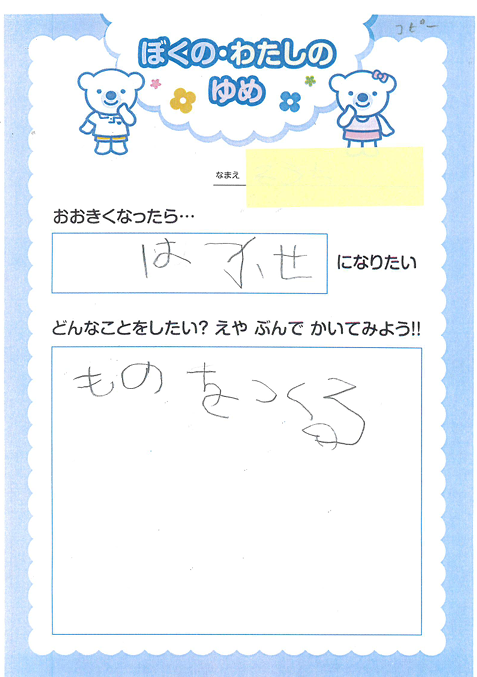 コピー
ぼくの・わたしの
ゆめ
なまえ
おおきくなったら…
は かせ
になりたい
どんなことをしたい? えや ぶんで かいてみよう!!
ものをつくる